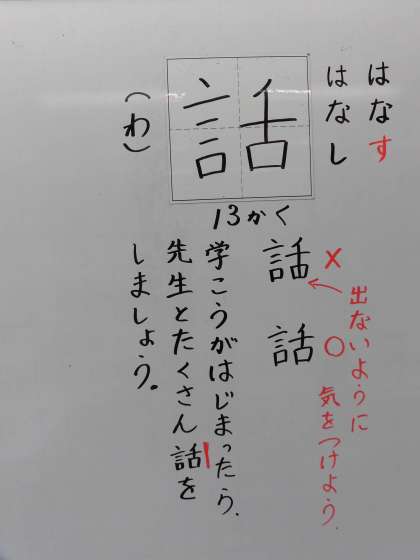 はなす
はなし
話
(わ)
13かく
話 ×
出ないように
話 ○
気をつけよう.
学こうがはじまったら.
先生とたくさん話を
しましょう。